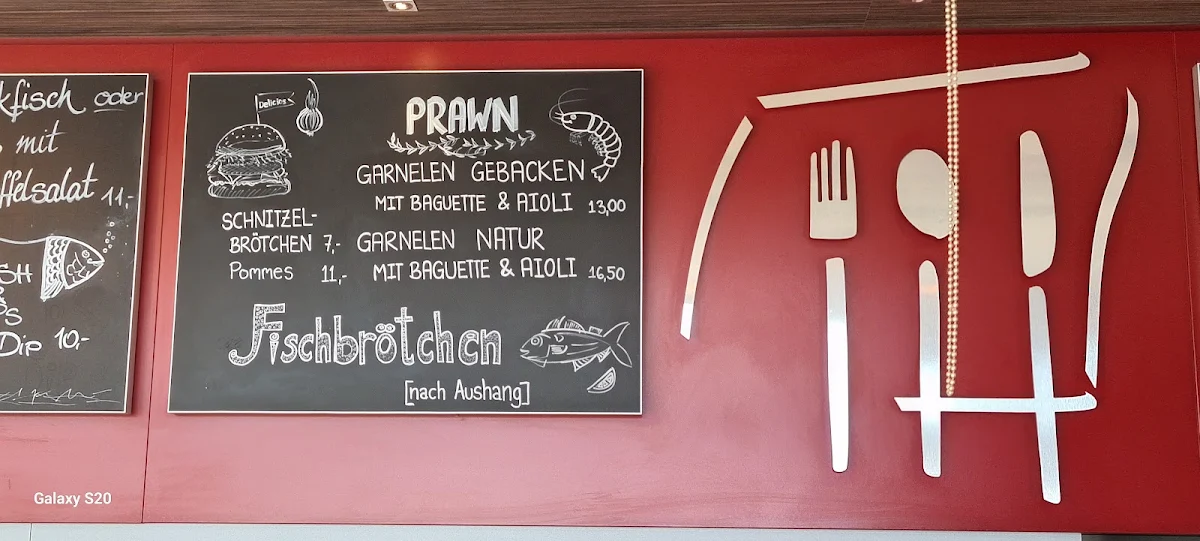 kfisch oder
mit
ffelsalat 11,-
SH
&
Dip 10,-
Delicius
PRAWN
GARNELEN GEBACKEN
MIT BAGUETTE & AIOLI 13,00
SCHNITZEL-
BRÖTCHEN 7,-
Pommes 11,-
GARNELEN NATUR
MIT BAGUETTE & AIOLI 16,50
Fischbrötchen
[nach Aushang]
Galaxy S20